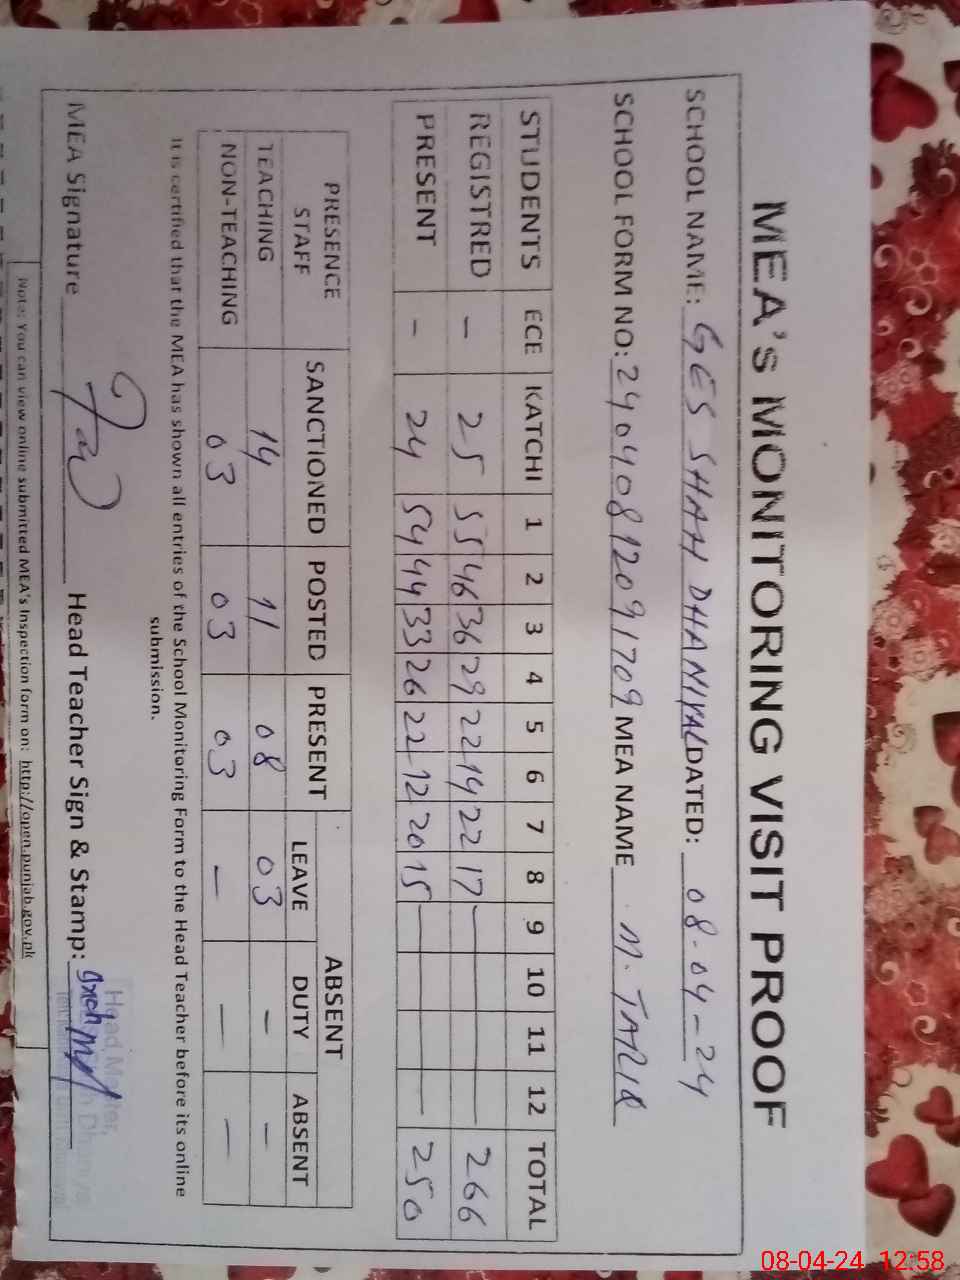 MEA's MONITORING VISIT PROOF
SCHOOL NAME: GES SHAH DHANIYAL DATED: 08-04-24
SCHOOL FORM NO: 2404081209 1709 MEA NAME M. TARIQ
STUDENTS ECE KATCHI 1 2 3 4 5 6 7 8 9 10 11 12 TOTAL
REGISTRED - 25 55 46 36 29 22 14 22 17 — — — — 266
PRESENT - 24 54 44 33 26 22 12 20 15 — — — — 250
PRESENCE STAFF SANCTIONED POSTED PRESENT ABSENT
LEAVE DUTY ABSENT
TEACHING 14 11 08 03 - -
NON-TEACHING 03 03 03 - - -
It is certified that the MEA has shown all entries of the School Monitoring Form to the Head Teacher before its online
submission.
MEA Signature Head Teacher Sign & Stamp:
Head Master,
Note: You can view online submitted MEA's Inspection form on: http://open.punjab.gov.pk
08-04-24 12:58